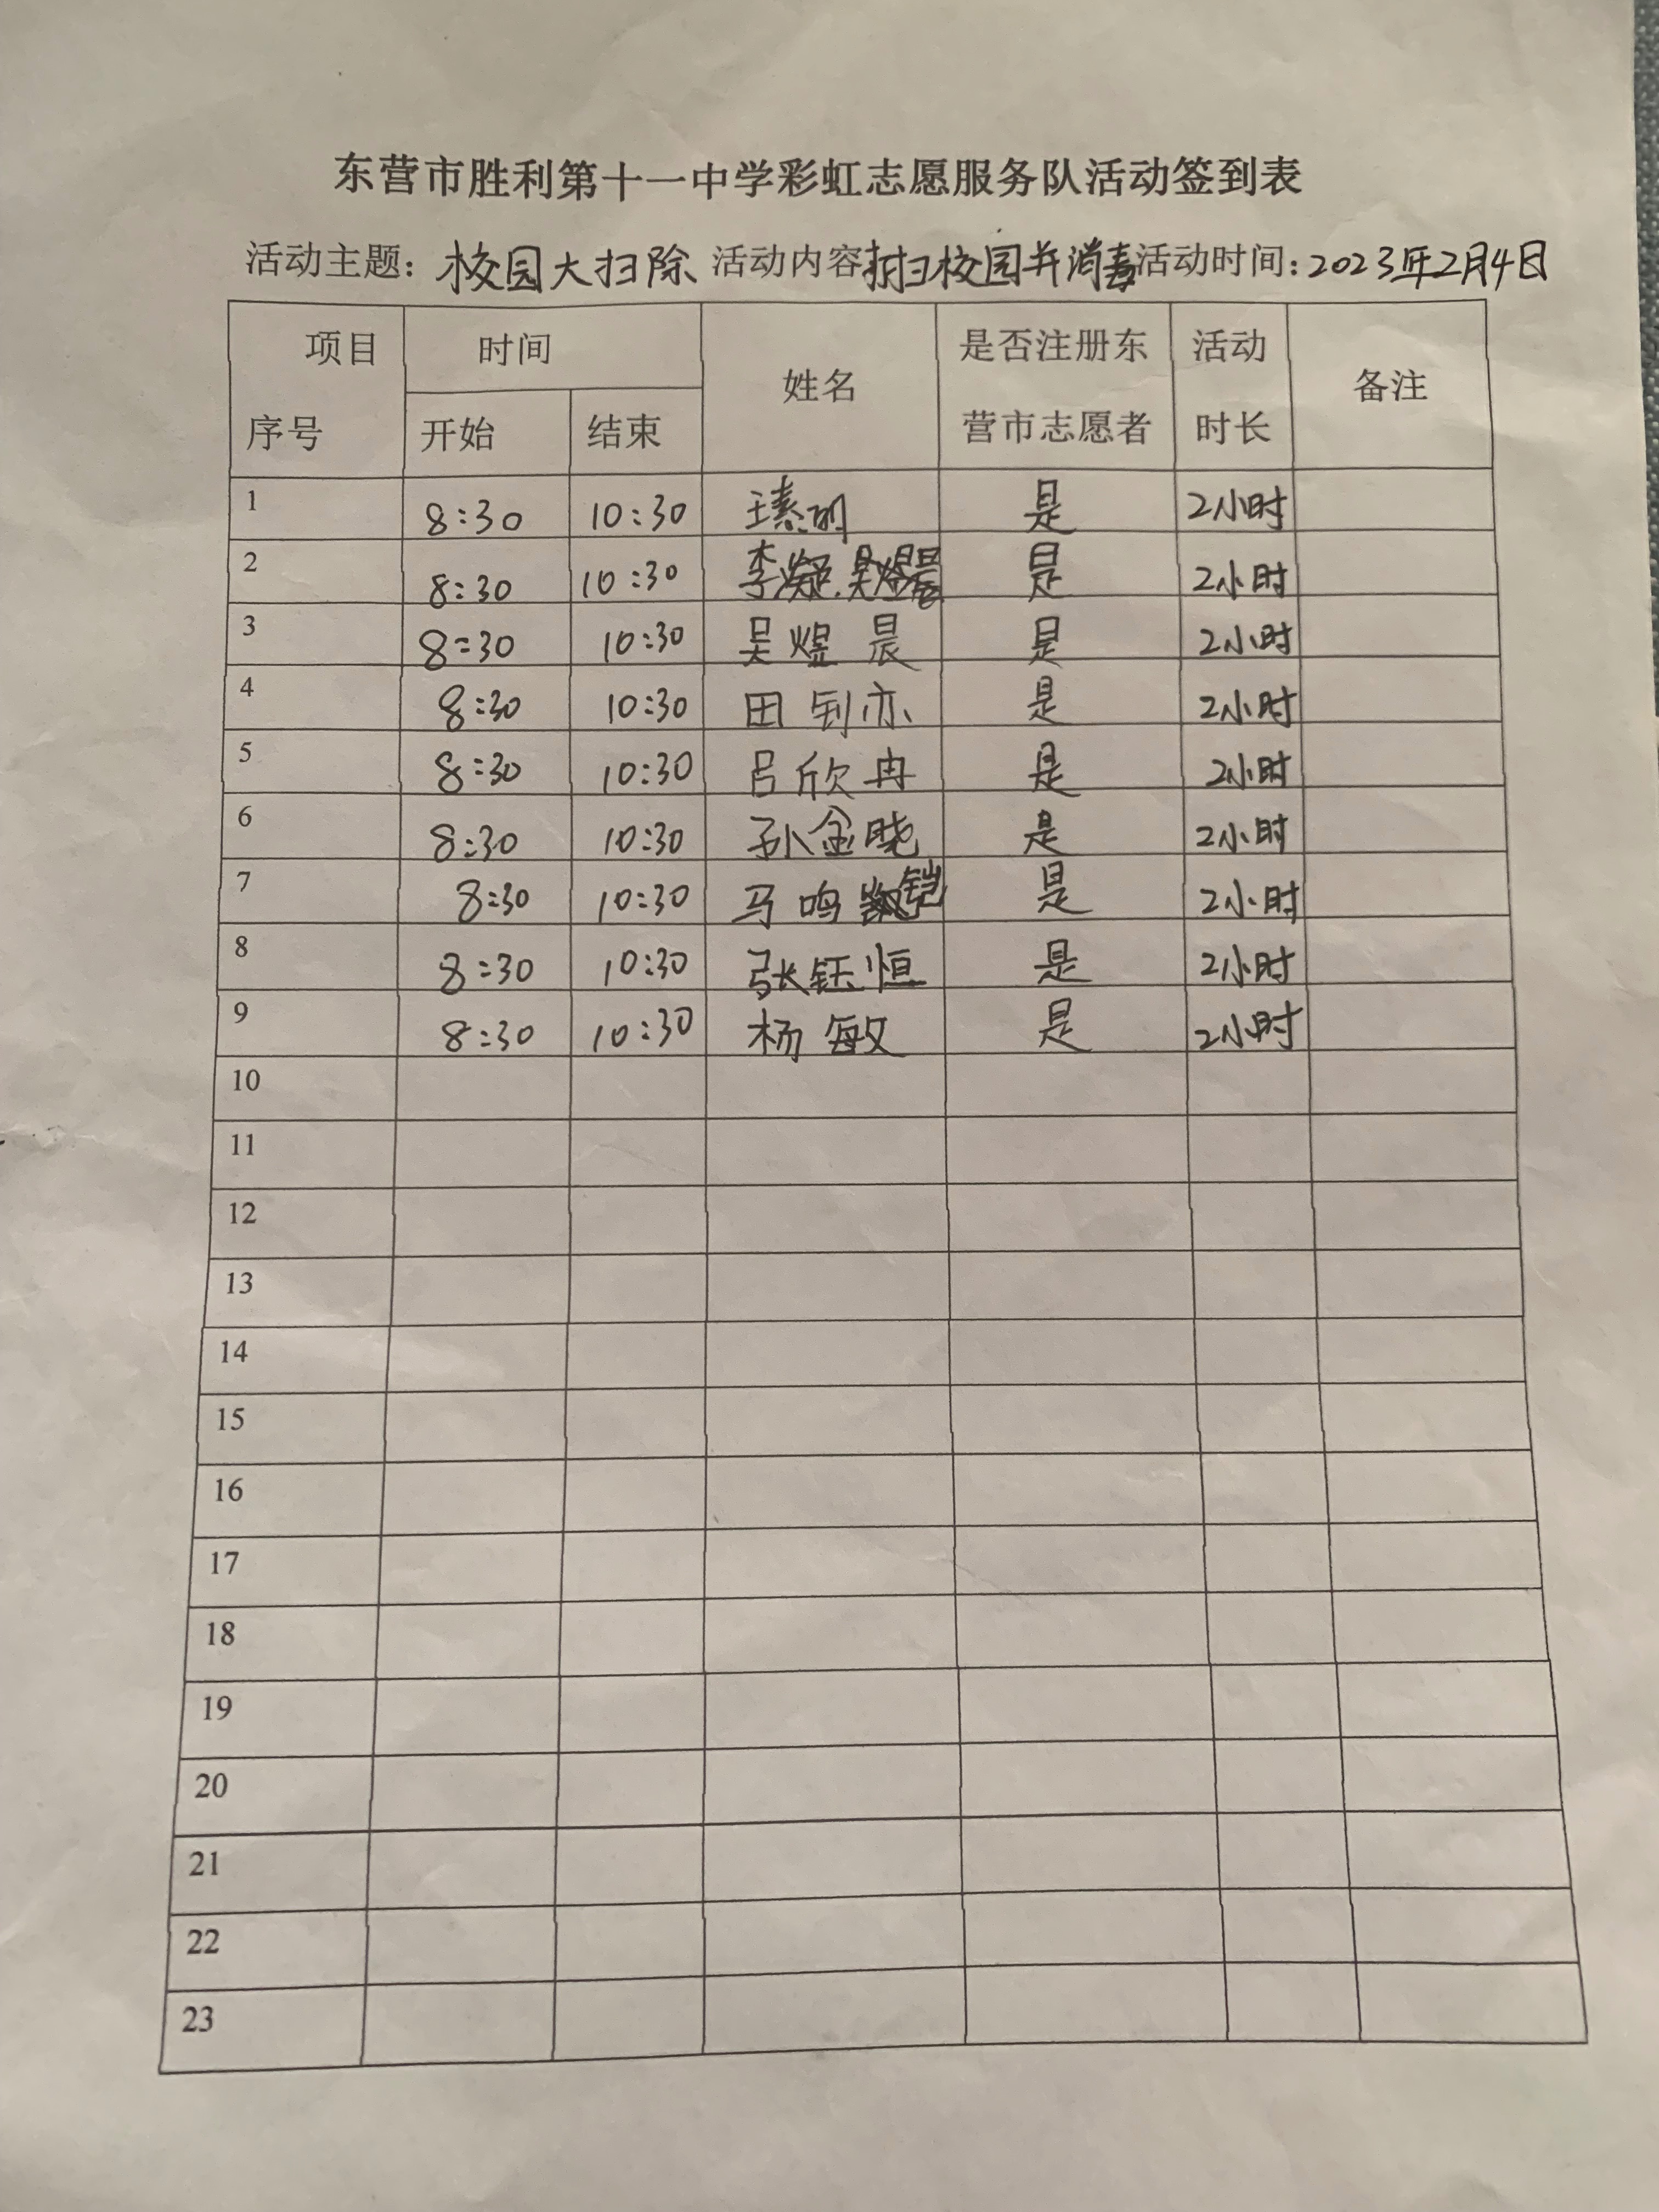 东营市胜利第十一中学彩虹志愿服务队活动签到表
活动主题：校园大扫除 活动内容 打扫校园并消毒 活动时间：2023年2月4日
项目 时间 姓名 是否注册东 活动 备注
序号 开始 结束 营市志愿者 时长
1 8:30 10:30 是 2小时
2 8:30 10:30 李凝 是 2小时
3 8:30 10:30 吴煜晨 是 2小时
4 8:30 10:30 田钊亦 是 2小时
5 8:30 10:30 吕欣冉 是 2小时
6 8:30 10:30 孙金晓 是 2小时
7 8:30 10:30 马鸣铠 是 2小时
8 8:30 10:30 张钰恒 是 2小时
9 8:30 10:30 杨敏 是 2小时
10
11
12
13
14
15
16
17
18
19
20
21
22
23